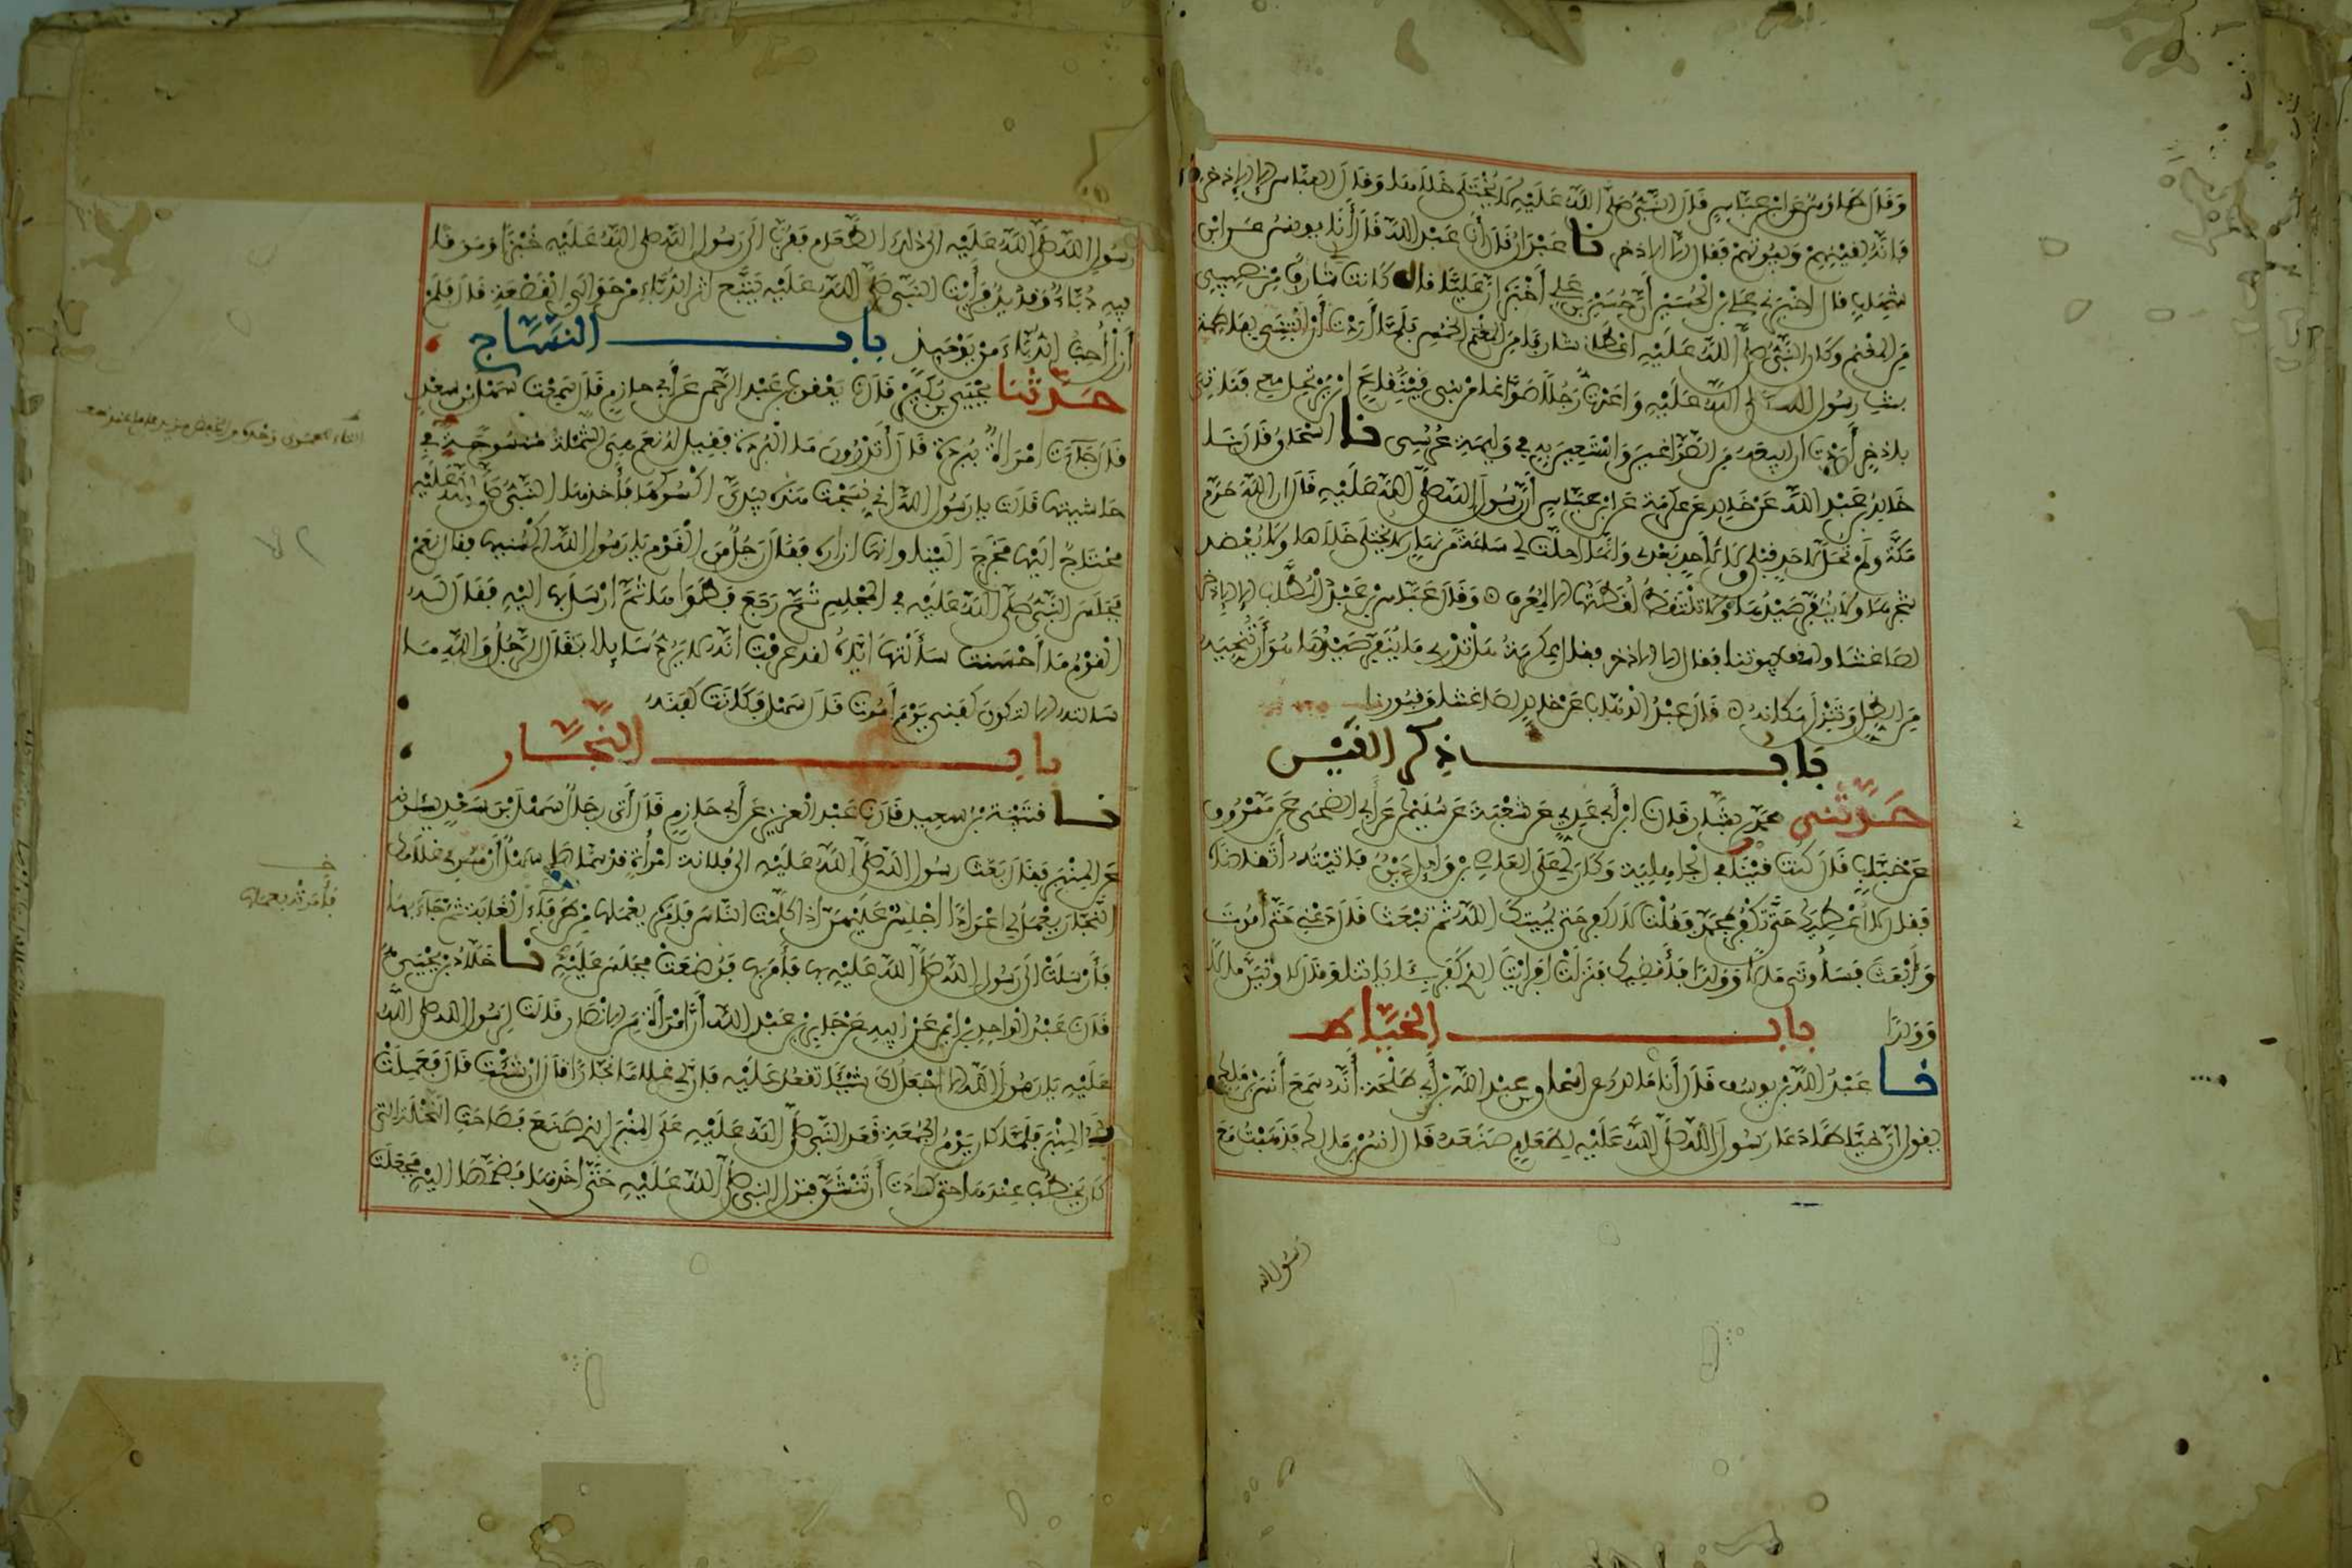 وَقَالَ طَاوُسٌ عَنِ ابْنِ عَبَّاسٍ قَالَ النَّبِيُّ صَلَّى اللَّهُ عَلَيْهِ لَا يُخْتَلَى خَلَاهَا وَقَالَ الْعَبَّاسُ إِلَّا الْإِذْخِرَ
فَإِنَّهُ لِقَيْنِهِمْ وَبُيُوتِهِمْ فَقَالَ إِلَّا الْإِذْخِرَ نا عَبْدَانُ قَالَ أَنَا عَبْدُ اللَّهِ قَالَ أَنَا يُونُسُ عَنِ ابْنِ
شِهَابٍ قَالَ أَخْبَرَنِي عَلِيُّ بْنُ الْحُسَيْنِ أَنَّ حُسَيْنَ بْنَ عَلِيٍّ أَخْبَرَهُ أَنَّ عَلِيًّا قَالَ كَانَتْ لِي شَارِفٌ مِنْ نَصِيبِي
مِنَ الْمَغْنَمِ وَكَانَ النَّبِيُّ صَلَّى اللَّهُ عَلَيْهِ أَعْطَانِي شَارِفًا مِنَ الْمَغْنَمِ الْخُمُسِ فَلَمَّا أَرَدْتُ أَنْ أَبْتَنِيَ بِفَاطِمَةَ
بِنْتِ رَسُولِ اللَّهِ صَلَّى اللَّهُ عَلَيْهِ وَاعَدْتُ رَجُلًا صَوَّاغًا مِنْ بَنِي قَيْنُقَاعَ أَنْ يَرْتَحِلَ مَعِي فَنَأْتِيَ
بِإِذْخِرٍ أَرَدْتُ أَنْ أَبِيعَهُ مِنَ الصَّوَّاغِينَ وَأَسْتَعِينَ بِهِ فِي وَلِيمَةِ عُرْسِي نا إِسْحَاقُ قَالَ نَا
خَالِدُ بْنُ عَبْدِ اللَّهِ عَنْ خَالِدٍ عَنْ عِكْرِمَةَ عَنِ ابْنِ عَبَّاسٍ أَنَّ رَسُولَ اللَّهِ صَلَّى اللَّهُ عَلَيْهِ قَالَ إِنَّ اللَّهَ حَرَّمَ
مَكَّةَ وَلَمْ تَحِلَّ لِأَحَدٍ قَبْلِي وَلَا لِأَحَدٍ بَعْدِي وَإِنَّمَا أُحِلَّتْ لِي سَاعَةً مِنْ نَهَارٍ لَا يُخْتَلَى خَلَاهَا وَلَا يُعْضَدُ
شَجَرُهَا وَلَا يُنَفَّرُ صَيْدُهَا وَلَا تُلْتَقَطُ لُقَطَتُهَا إِلَّا لِمُعَرِّفٍ وَقَالَ عَبَّاسُ بْنُ عَبْدِ الْمُطَّلِبِ إِلَّا الْإِذْخِرَ
لِصَاغَتِنَا وَلِسُقُفِ بُيُوتِنَا فَقَالَ إِلَّا الْإِذْخِرَ فَقَالَ عِكْرِمَةُ هَلْ تَدْرِي مَا يُنَفَّرُ صَيْدُهَا هُوَ أَنْ تُنَحِّيَهُ
مِنَ الظِّلِّ وَتَنْزِلَ مَكَانَهُ قَالَ عَبْدُ الْوَهَّابِ عَنْ خَالِدٍ لِصَاغَتِنَا وَقُبُورِنَا
بَابُ ذِكْرِ الْقَيْنِ
حَدَّثَنِي مُحَمَّدُ بْنُ بَشَّارٍ قَالَ نَا ابْنُ أَبِي عَدِيٍّ عَنْ شُعْبَةَ عَنْ سُلَيْمَانَ عَنْ أَبِي الضُّحَى عَنْ مَسْرُوقٍ
عَنْ خَبَّابٍ قَالَ كُنْتُ قَيْنًا فِي الْجَاهِلِيَّةِ وَكَانَ لِي عَلَى الْعَاصِ بْنِ وَائِلٍ دَيْنٌ فَأَتَيْتُهُ أَتَقَاضَاهُ
فَقَالَ لَا أُعْطِيكَ حَتَّى تَكْفُرَ بِمُحَمَّدٍ فَقُلْتُ لَا أَكْفُرُ حَتَّى يُمِيتَكَ اللَّهُ ثُمَّ تُبْعَثَ قَالَ دَعْنِي حَتَّى أَمُوتَ
وَأُبْعَثَ فَسَأُوتَى مَالًا وَوَلَدًا فَأَقْضِيَكَ فَنَزَلَتْ أَفَرَأَيْتَ الَّذِي كَفَرَ بِآيَاتِنَا وَقَالَ لَأُوتَيَنَّ مَالًا
وَوَلَدًا بابُ الْخَيَّاطِ
نا عَبْدُ اللَّهِ بْنُ يُوسُفَ قَالَ أَنَا مَالِكٌ عَنْ إِسْحَاقَ بْنِ عَبْدِ اللَّهِ بْنِ أَبِي طَلْحَةَ أَنَّهُ سَمِعَ أَنَسَ بْنَ مَالِكٍ
يَقُولُ إِنَّ خَيَّاطًا دَعَا رَسُولَ اللَّهِ صَلَّى اللَّهُ عَلَيْهِ لِطَعَامٍ صَنَعَهُ قَالَ أَنَسُ بْنُ مَالِكٍ فَذَهَبْتُ مَعَ
رَسُولِ اللَّهِ
رَسُولِ اللَّهِ صَلَّى اللَّهُ عَلَيْهِ إِلَى ذَلِكَ الطَّعَامِ فَقَرَّبَ إِلَى رَسُولِ اللَّهِ صَلَّى اللَّهُ عَلَيْهِ خُبْزًا وَمَرَقًا
فِيهِ دُبَّاءٌ وَقَدِيدٌ فَرَأَيْتُ النَّبِيَّ صَلَّى اللَّهُ عَلَيْهِ يَتَتَبَّعُ الدُّبَّاءَ مِنْ حَوَالَيِ الْقَصْعَةِ قَالَ فَلَمْ
أَزَلْ أُحِبُّ الدُّبَّاءَ مِنْ يَوْمَئِذٍ بابُ النَّسَّاجِ
حَدَّثَنَا يَحْيَى بْنُ بُكَيْرٍ قَالَ نَا يَعْقُوبُ بْنُ عَبْدِ الرَّحْمَنِ عَنْ أَبِي حَازِمٍ قَالَ سَمِعْتُ سَهْلَ بْنَ سَعْدٍ
قَالَ جَاءَتِ امْرَأَةٌ بِبُرْدَةٍ قَالَ أَتَدْرُونَ مَا الْبُرْدَةُ فَقِيلَ لَهُ نَعَمْ هِيَ الشَّمْلَةُ مَنْسُوجَةٌ فِي
حَاشِيَتِهَا قَالَتْ يَا رَسُولَ اللَّهِ إِنِّي نَسَجْتُ هَذِهِ بِيَدِي أَكْسُوكَهَا فَأَخَذَهَا النَّبِيُّ صَلَّى اللَّهُ عَلَيْهِ
مُحْتَاجًا إِلَيْهَا فَخَرَجَ إِلَيْنَا وَإِنَّهَا إِزَارُهُ فَقَالَ رَجُلٌ مِنَ الْقَوْمِ يَا رَسُولَ اللَّهِ اكْسُنِيهَا فَقَالَ نَعَمْ
فَجَلَسَ النَّبِيُّ صَلَّى اللَّهُ عَلَيْهِ فِي الْمَجْلِسِ ثُمَّ رَجَعَ فَطَوَاهَا ثُمَّ أَرْسَلَ بِهَا إِلَيْهِ فَقَالَ لَهُ
الْقَوْمُ مَا أَحْسَنْتَ سَأَلْتَهَا إِيَّاهُ لَقَدْ عَرَفْتَ أَنَّهُ لَا يَرُدُّ سَائِلًا فَقَالَ الرَّجُلُ وَاللَّهِ مَا
سَأَلْتُهُ إِلَّا لِتَكُونَ كَفَنِي يَوْمَ أَمُوتُ قَالَ سَهْلٌ فَكَانَتْ كَفَنَهُ
بابُ النَّجَّارِ
نا قُتَيْبَةُ بْنُ سَعِيدٍ قَالَ نَا عَبْدُ الْعَزِيزِ عَنْ أَبِي حَازِمٍ قَالَ أَتَى رِجَالٌ سَهْلَ بْنَ سَعْدٍ يَسْأَلُونَهُ
عَنِ الْمِنْبَرِ فَقَالَ بَعَثَ رَسُولُ اللَّهِ صَلَّى اللَّهُ عَلَيْهِ إِلَى فُلَانَةَ امْرَأَةٍ قَدْ سَمَّاهَا سَهْلٌ أَنْ مُرِي غُلَامَكِ
النَّجَّارَ يَعْمَلُ لِي أَعْوَادًا أَجْلِسُ عَلَيْهِنَّ إِذَا كَلَّمْتُ النَّاسَ فَأَمَرَتْهُ يَعْمَلُهَا مِنْ طَرْفَاءِ الْغَابَةِ ثُمَّ جَاءَ بِهَا
فَأَرْسَلَتْ إِلَى رَسُولِ اللَّهِ صَلَّى اللَّهُ عَلَيْهِ بِهَا فَأَمَرَ بِهَا فَوُضِعَتْ فَجَلَسَ عَلَيْهِ نا خَلَّادُ بْنُ يَحْيَى
قَالَ نَا عَبْدُ الْوَاحِدِ بْنُ أَيْمَنَ عَنْ أَبِيهِ عَنْ جَابِرِ بْنِ عَبْدِ اللَّهِ أَنَّ امْرَأَةً مِنَ الْأَنْصَارِ قَالَتْ لِرَسُولِ اللَّهِ صَلَّى اللَّهُ
عَلَيْهِ يَا رَسُولَ اللَّهِ أَلَا أَجْعَلُ لَكَ شَيْئًا تَقْعُدُ عَلَيْهِ فَإِنَّ لِي غُلَامًا نَجَّارًا قَالَ إِنْ شِئْتِ قَالَ فَعَمِلَتْ
لَهُ الْمِنْبَرَ فَلَمَّا كَانَ يَوْمُ الْجُمُعَةِ قَعَدَ النَّبِيُّ صَلَّى اللَّهُ عَلَيْهِ عَلَى الْمِنْبَرِ الَّذِي صُنِعَ فَصَاحَتِ النَّخْلَةُ الَّتِي
كَانَ يَخْطُبُ عِنْدَهَا حَتَّى كَادَتْ أَنْ تَنْشَقَّ فَنَزَلَ النَّبِيُّ صَلَّى اللَّهُ عَلَيْهِ حَتَّى أَخَذَهَا فَضَمَّهَا إِلَيْهِ فَجَعَلَتْ
فَأَمَرَتْهُ يَعْمَلُهَا